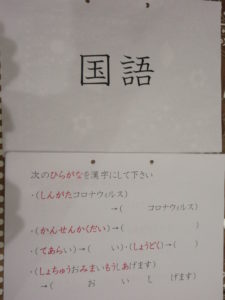 国語
次のひらがなを漢字にして下さい
・(しんがたコロナウィルス)
→(　　　コロナウィルス)
・(かんせんかくだい)→(　　　　　)
・(てあらい)→(　　い)・(しょうどく)→(　　)
・(しょちゅうおみまいもうしあげます)
→(　　お　　い　し　　げます)